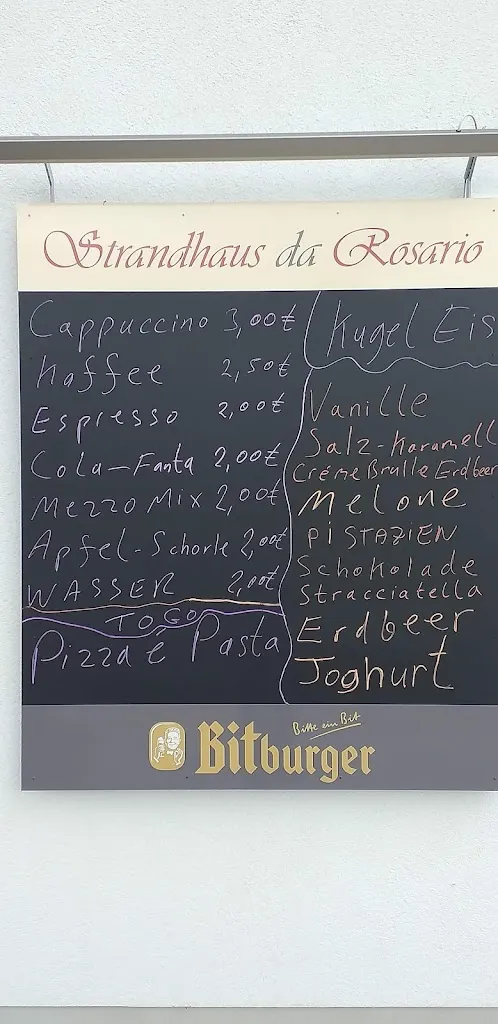 Strandhaus da Rosario
Cappuccino 3,00€
Kaffee 2,50€
Espresso 2,00€
Cola-Fanta 2,00€
Mezzo Mix 2,00€
Apfel-Schorle 2,00€
WASSER 2,00€
TO GO
Pizza é Pasta
Kugel Eis
Vanille
Salz-Karamell
Créme Brulle Erdbeer
Melone
PISTAZIEN
Schokolade
Stracciatella
Erdbeer
Joghurt
Bitte ein Bit
Bitburger